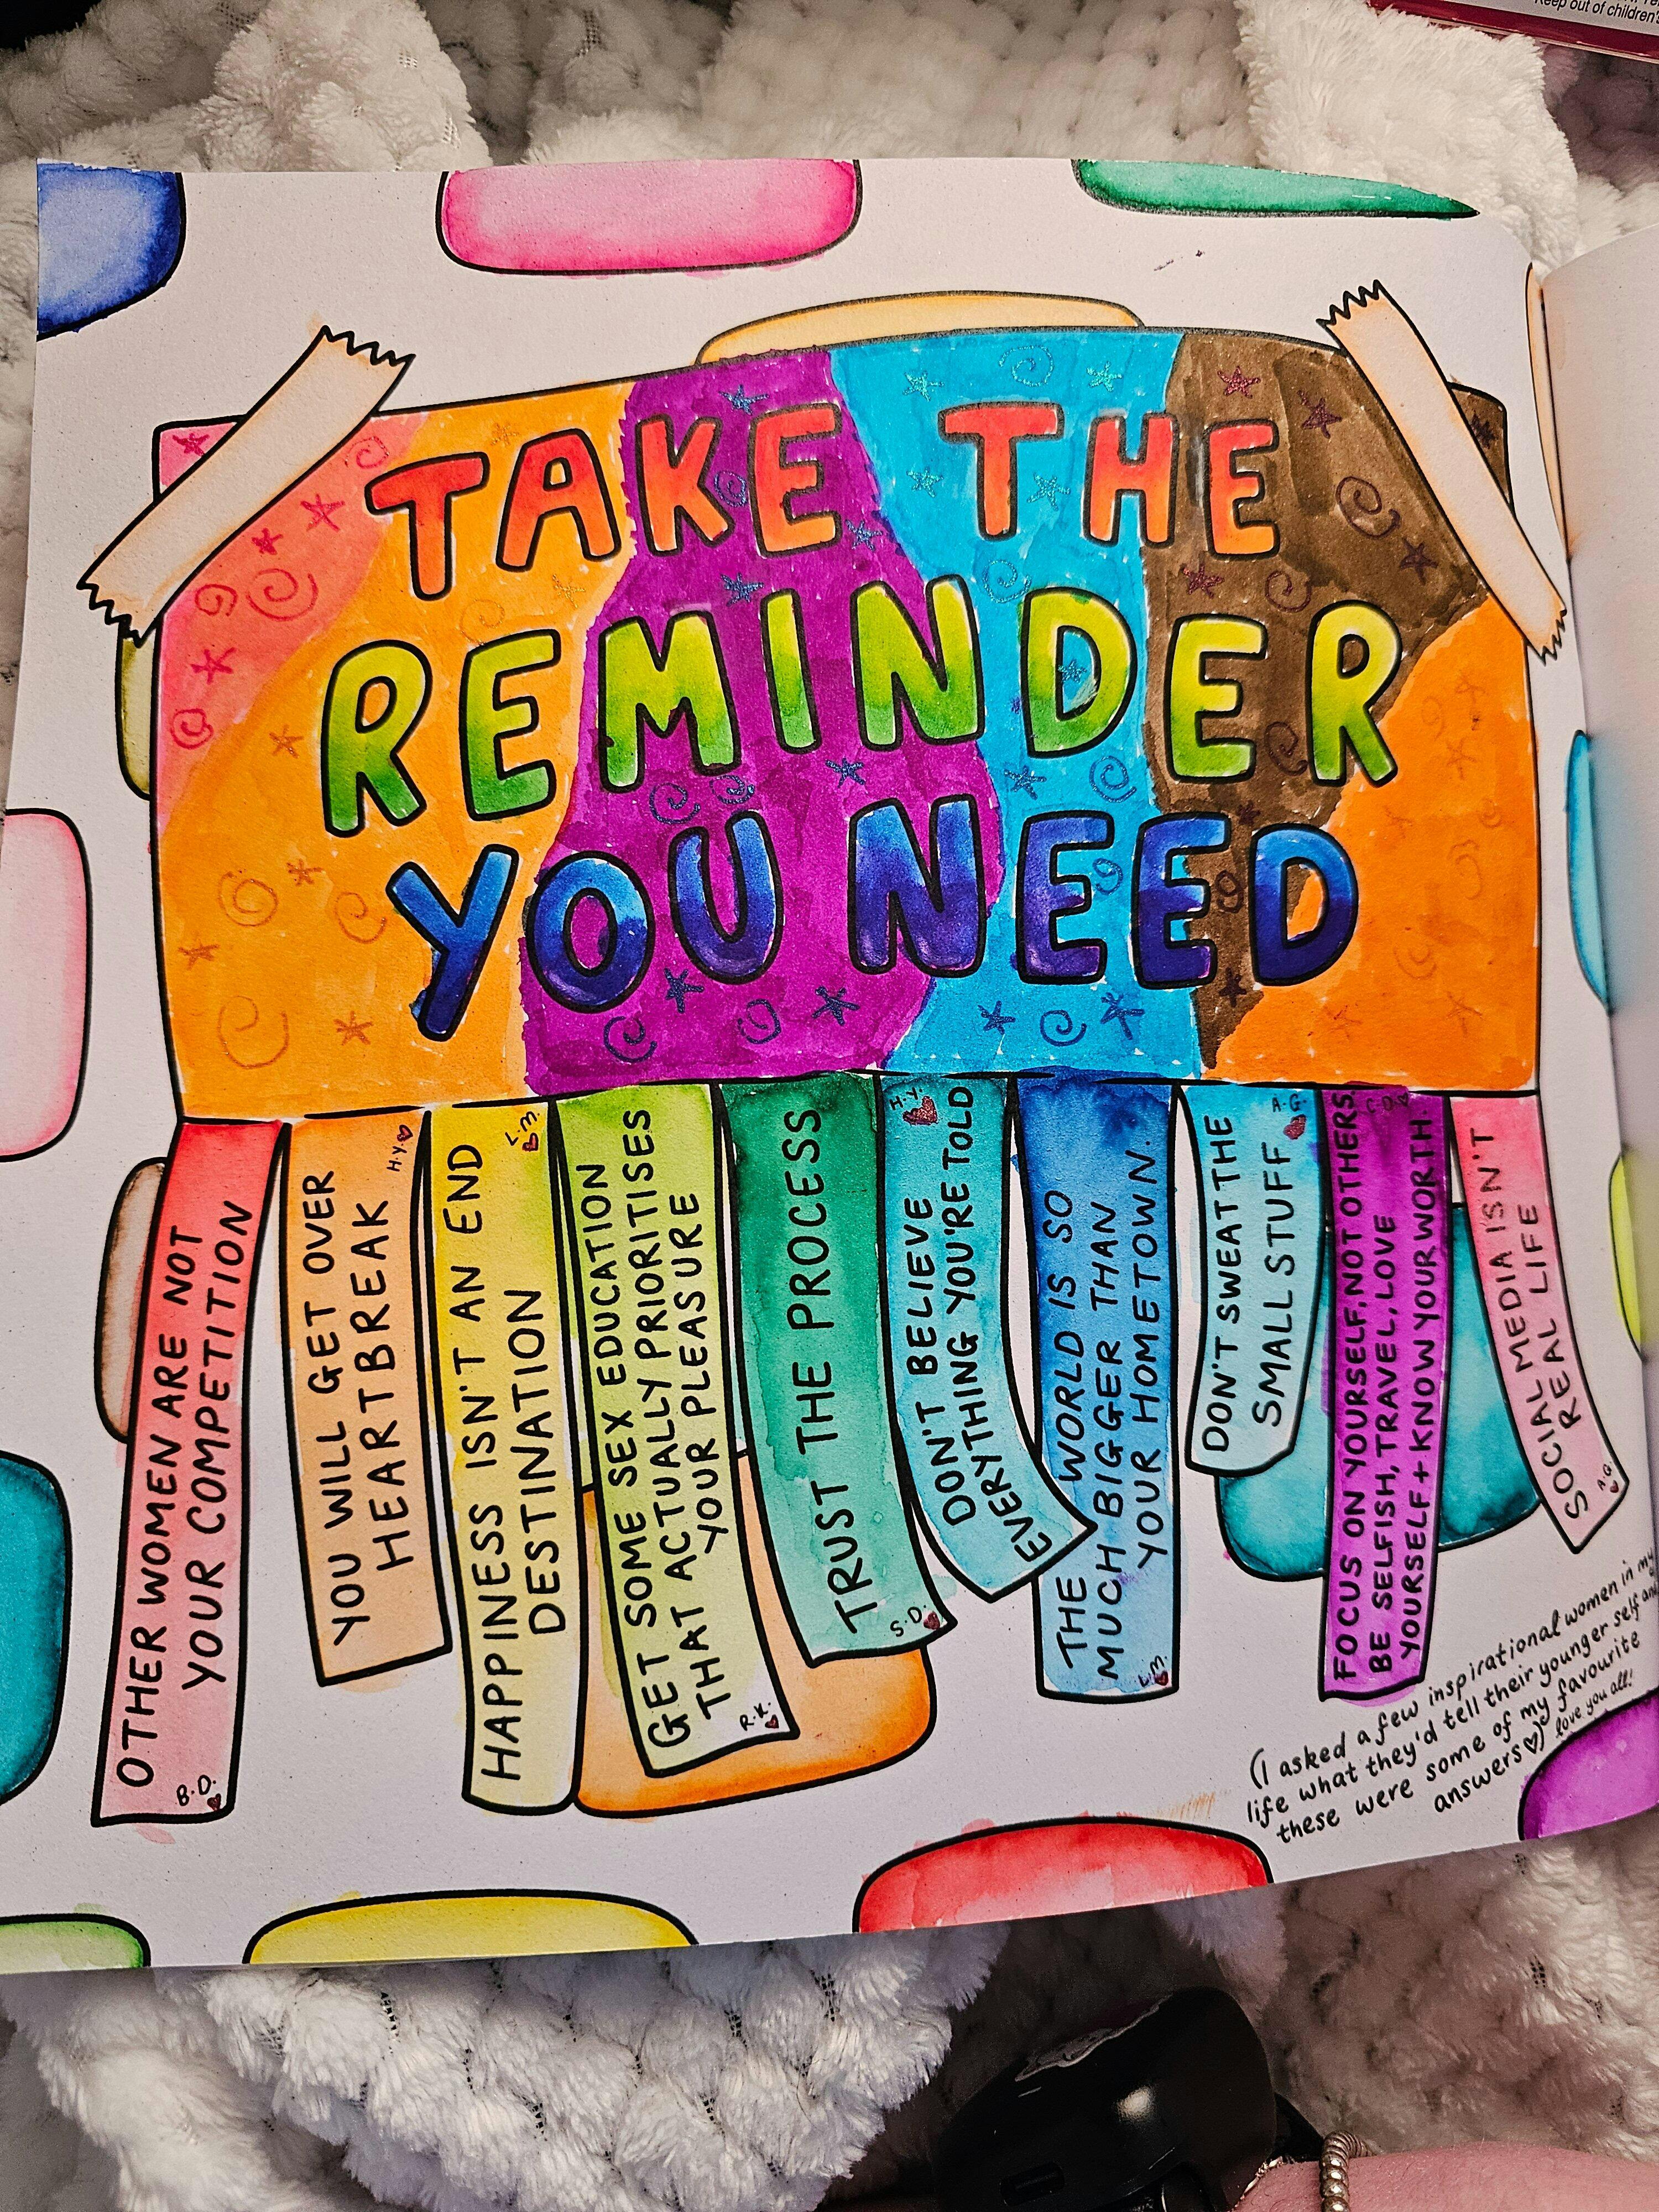 Keep out of children's
TAKE THE
REMINDER
YOU NEED
OTHER WOMEN ARE NOT
YOUR COMPETITION
B.D.
H.Y.
YOU WILL GET OVER
HEARTBREAK
L.M.
HAPPINESS ISN'T AN END
DESTINATION
GET SOME SEX EDUCATION
THAT ACTUALLY PRIORITISES
YOUR PLEASURE
R.K.
TRUST THE PROCESS
S.D.
H.Y.
DON'T BELIEVE
EVERYTHING YOU'RE TOLD
THE WORLD IS SO
MUCH BIGGER THAN
YOUR HOMETOWN.
L.M.
A.G.
DON'T SWEAT THE
SMALL STUFF
FOCUS ON YOURSELF, NOT OTHERS.
BE SELFISH, TRAVEL, LOVE
YOURSELF + KNOW YOUR WORTH
SOCIAL MEDIA ISN'T
REAL LIFE
A.G.
(I asked a few inspirational women in my
life what they'd tell their younger self and
these were some of my favourite
answers♡) love you all!